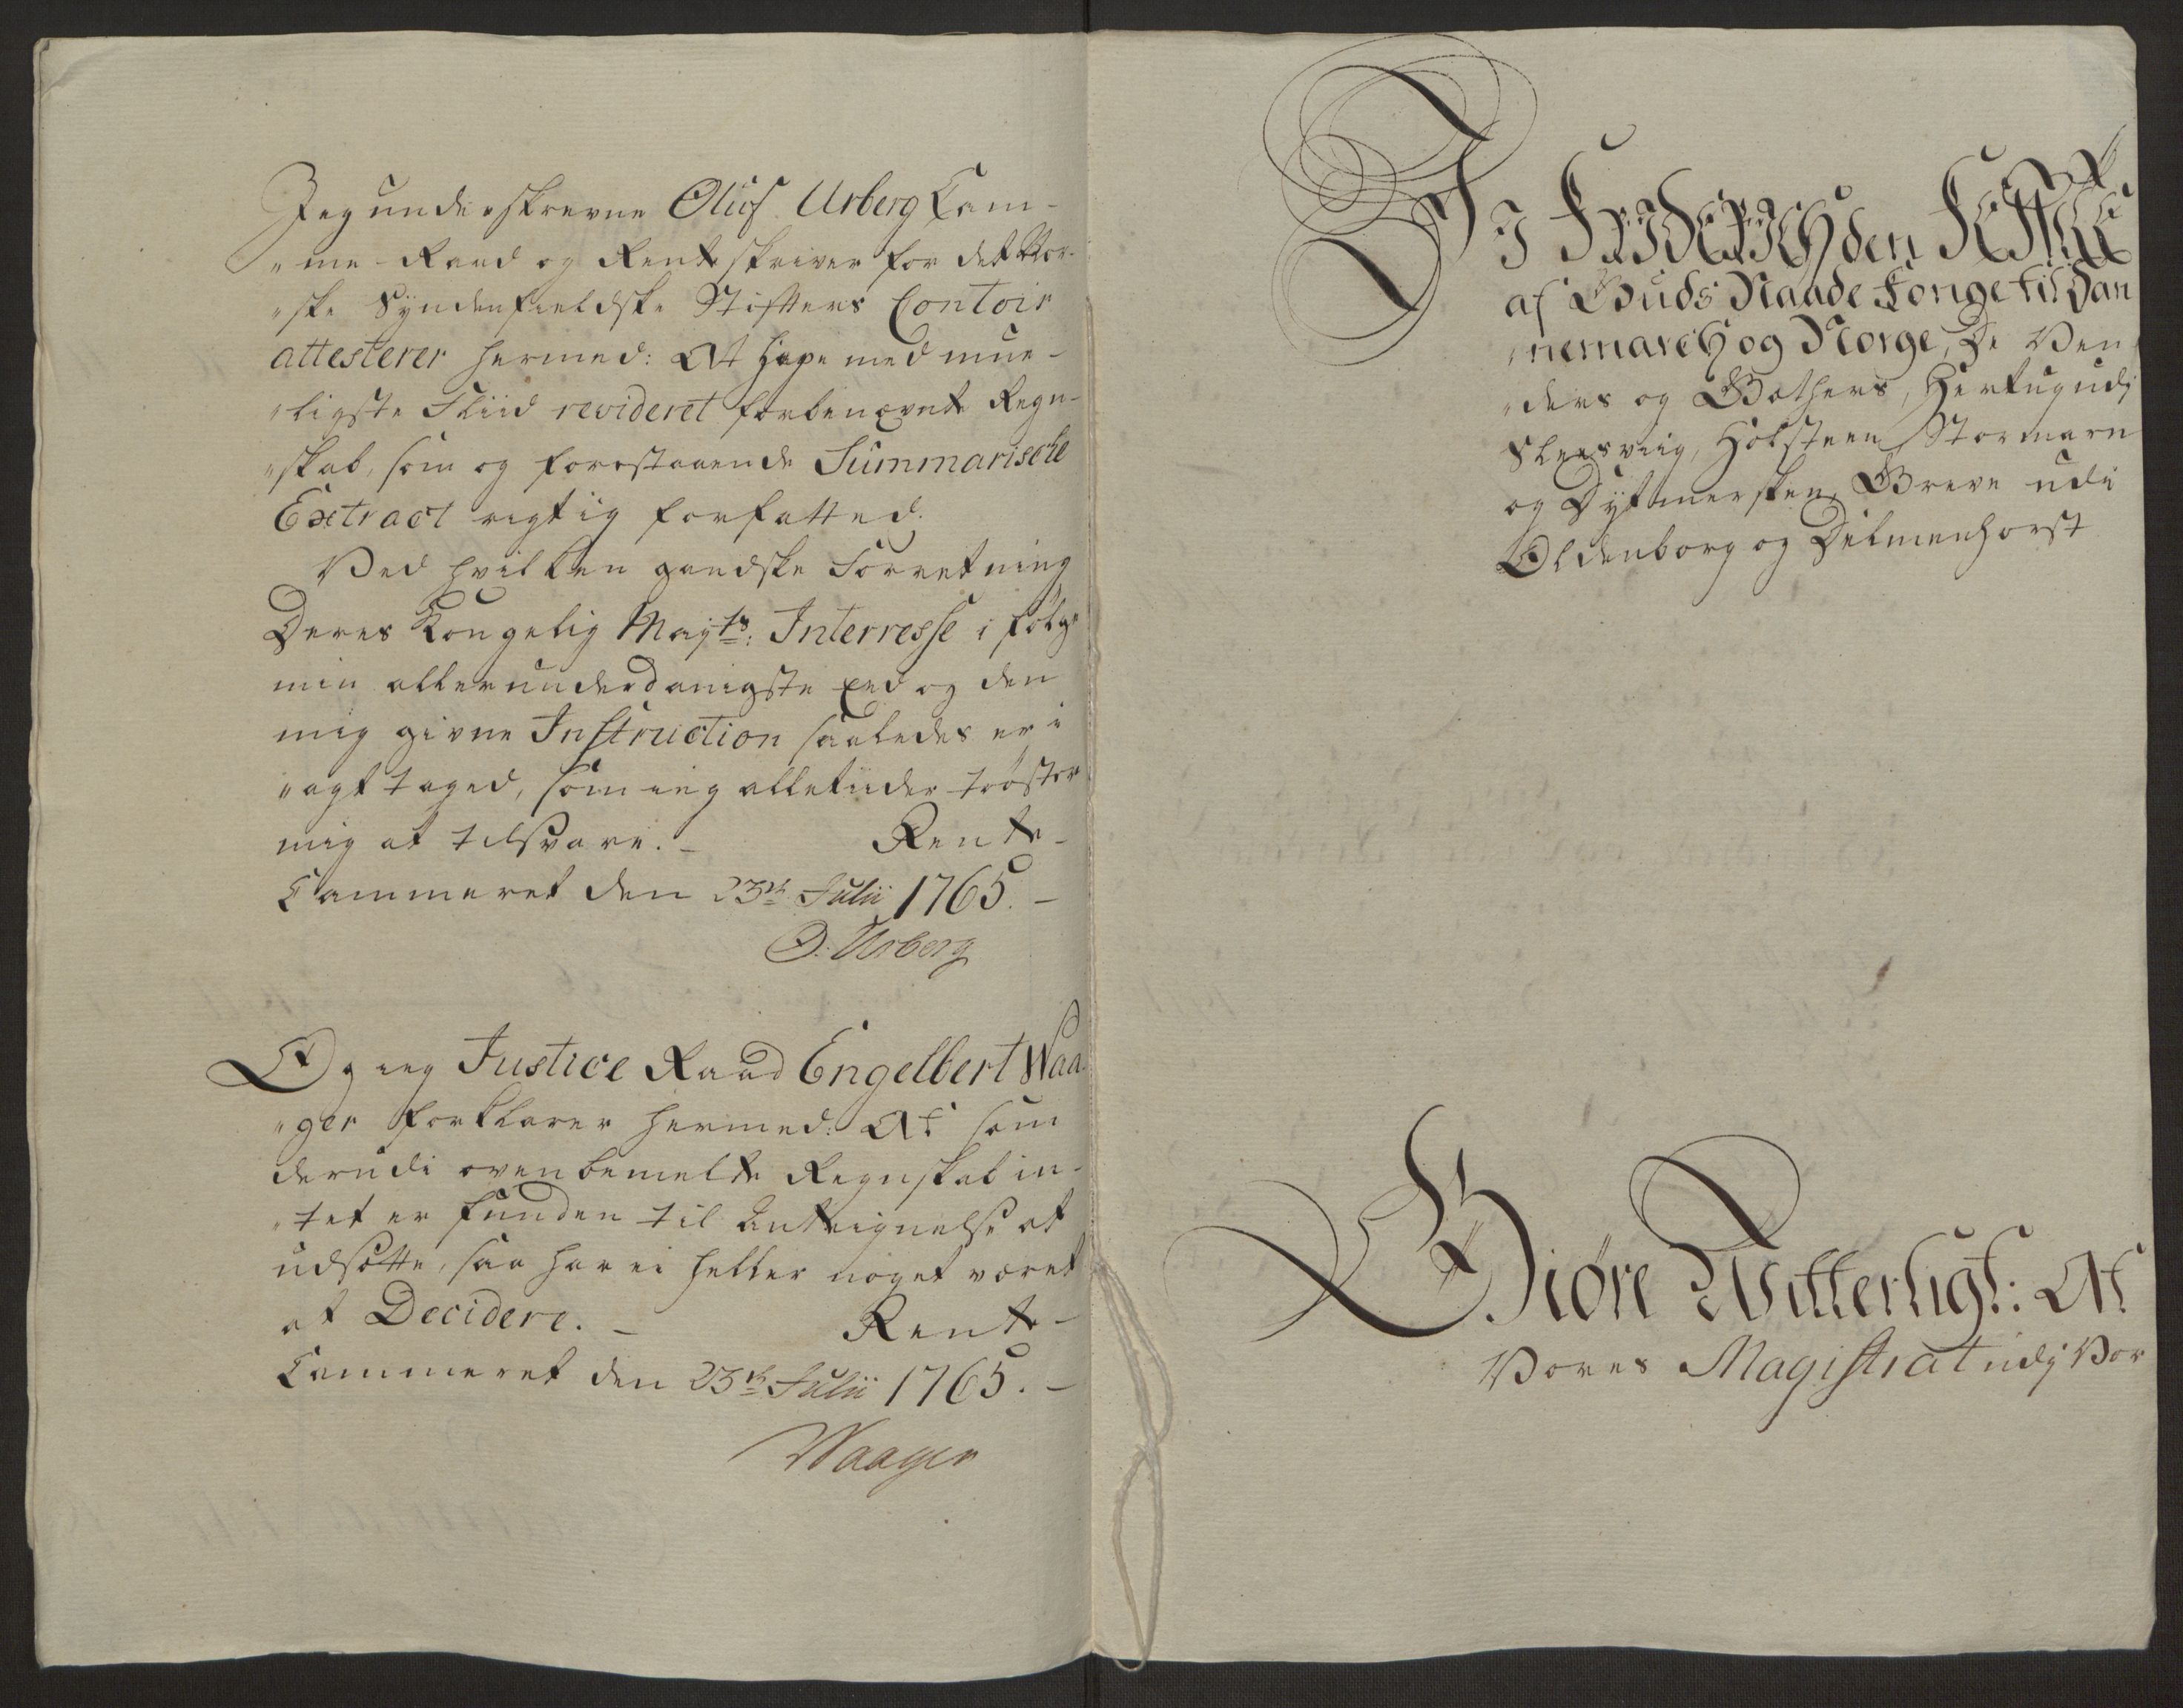 Jeg underskrevne Oluf Urberg Cam-
„me-Raad og Renteskriver for det Nor-
„ske Syndenfieldske Stifters Contoir
attesterer hermed: At have med mue-
„ligste Fliid revideret forbenævnte Regn-
„skab, som og forestaaende Summarische
Extract rigtig forfatted.
Ved hvilken gandske Forretning
Deres Kongelig Mayts: Interresse i følge
min allerunderdanigste Eed og den
mig givne Instruction saaledes er i
„agt taged, som ieg alletiider trøster
mig at tilsvare. – Rente-
Cammeret den 23de Julii 1765. –
O. Urberg
Og ieg Justice Raad Engelbert Waa-
„ger forklarer hermed: At som
derudi ovenbemelte Regnskab in-
„tet er funden til Antegnelse at
udsætte, saa har ei heller noget været
at Decidere. – Rente-
Cammeret den 23de Julii 1765. –
Waager
Vy Friderich den Femte
af Guds Naade Konge til Dan
„nemarch og Norge, De Ven
„ders og Gothers, Hertug udj
Sleesviig, Holsteen, Stormarn
og Dytmersken, Greve udi
Oldenborg og Delmenhorst
Giøre Witterligt: At
Vores Magistrat udj Vor